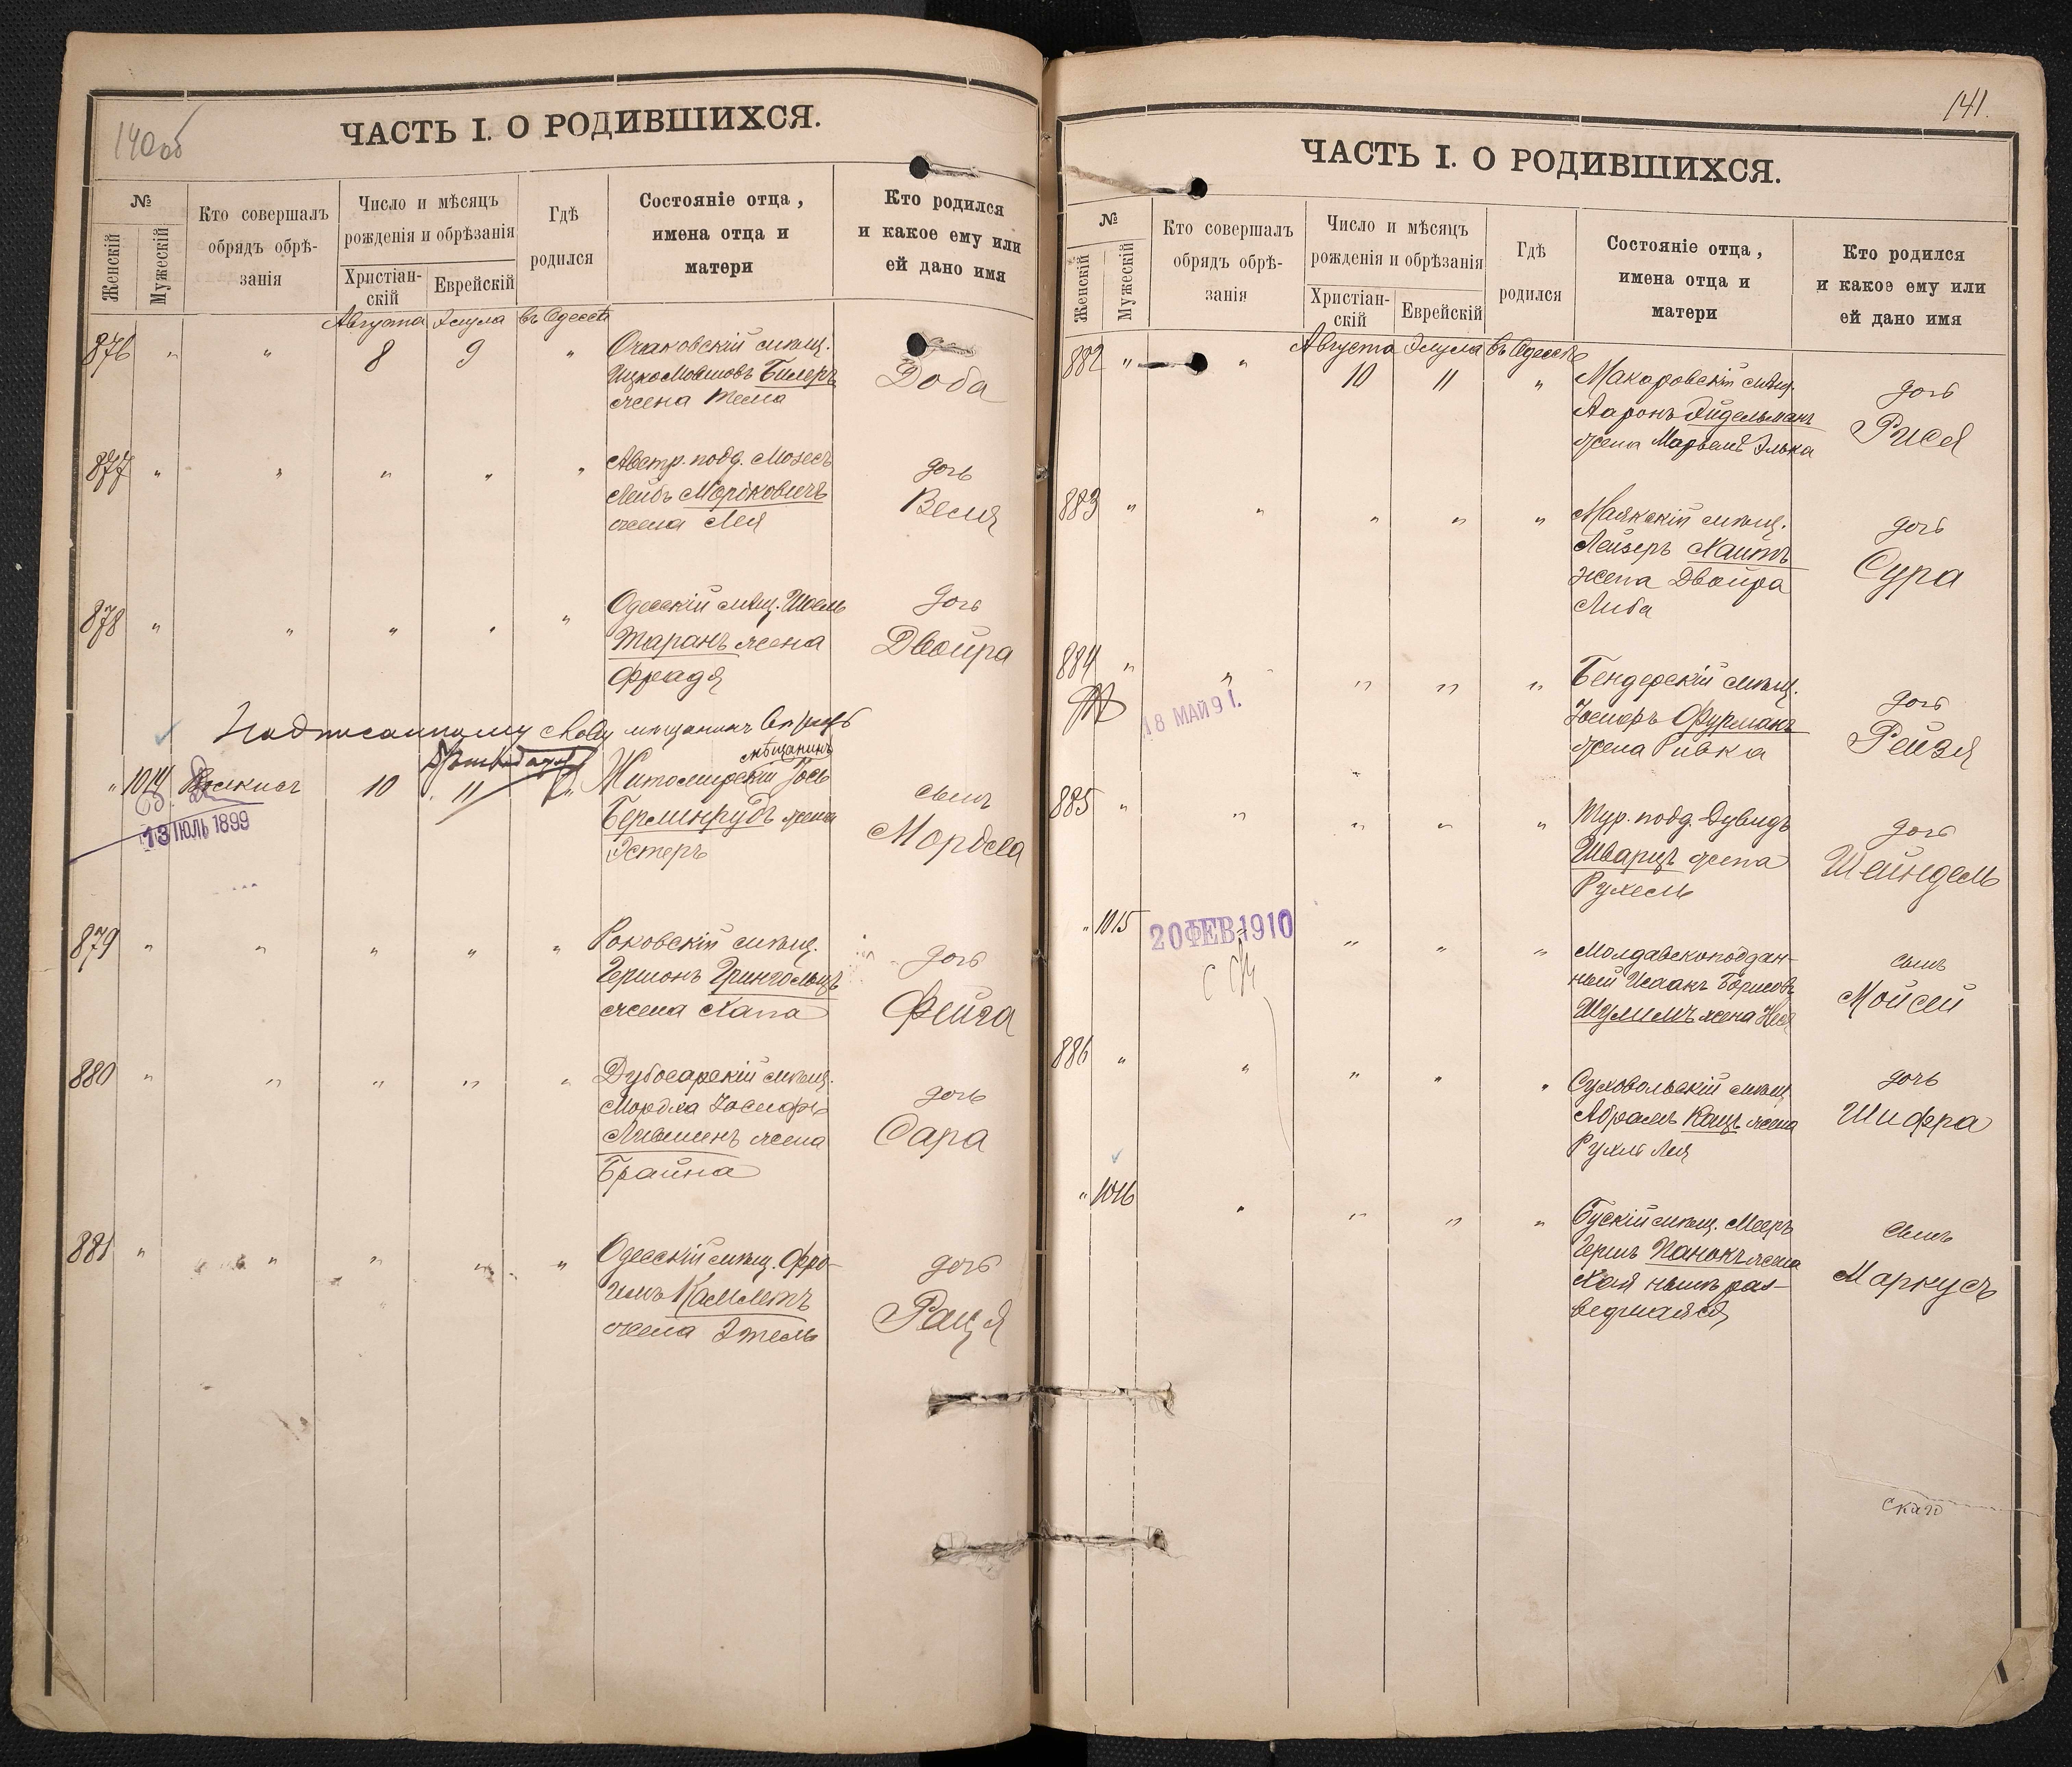 140об
ЧАСТЬ I. О РОДИВШИХСЯ.
№
Женскій
Мужескій
Кто совершалъ
обрядъ обрѣ-
занія
Число и мѣсяцъ
рожденія и обрѣзанія
Христіан-
скій
Еврейскій
Гдѣ
родился
Состояніе отца,
имена отца и
матери
Кто родился
и какое ему или
ей дано имя
Августа Элула въ Одессѣ
876 " " 8 9 "
Очаковскій мѣщ.
Ицко Мовшовъ Билеръ
жена Тема
Доба
877 " " " " "
Австр. подд. Мозесъ
Лейбъ Мордковичъ
жена Лея
дочь
Веся
878 " " " " "
Одесскій мѣщ. Шоель
Таранъ жена
Фрадя
дочь
Двойра
Надписанному слову мѣщанинъ вѣрить
" 1014 10 11 "
мѣщанинъ
Житомирскій Іось
Берлинрудъ жена
Эстеръ
сынъ
Мордха
13 ІЮЛЬ 1899
879 " " " " "
Роковскій мѣщ.
Гершонъ Грингольцъ
жена Хана
дочь
Фейга
880 " " " " "
Дубосарскій мѣщ.
Мордха Іосифъ
Лившенъ жена
Брайна
дочь
Сара
881 " " " " "
Одесскій мѣщ. Фро-
имъ Камметъ
жена Этель
дочь
Раця
141.
ЧАСТЬ I. О РОДИВШИХСЯ.
№
Женскій
Мужескій
Кто совершалъ
обрядъ обрѣ-
занія
Число и мѣсяцъ
рожденія и обрѣзанія
Христіан-
скій
Еврейскій
Гдѣ
родился
Состояніе отца,
имена отца и
матери
Кто родился
и какое ему или
ей дано имя
Августа Элула въ Одессѣ
882 " " 10 11 "
Макаровскій мѣщ.
Ааронъ Эйдельманъ
жена Элька
дочь
Рися
883 " " " " "
Маякскій мѣщ.
Лейзеръ Хаитъ
жена Двойра
Либа
дочь
Сура
884 " " " " "
18 МАЙ 91.
Бендерскій мѣщ.
Іосифъ Фурманъ
жена Ривка
дочь
Рейзя
885 " " " " "
Тур. подд. Дувидъ
Шварцъ жена
Рухель
дочь
Шейндель
" 1015 " " "
20 ФЕВ 1910
Молдавскоподдан-
ный Исаакъ Борисовъ
Шулимъ жена Неся
сынъ
Мойсей
886 " " " " "
Суховольскій мѣщ.
Абрамъ Кацъ жена
Рухля Лея
дочь
Шифра
" 1016 " " " "
Бускій мѣщ. Мееръ
Гершъ Панокъ жена
Хая нынѣ раз-
ведшаяся
сынъ
Маркусъ